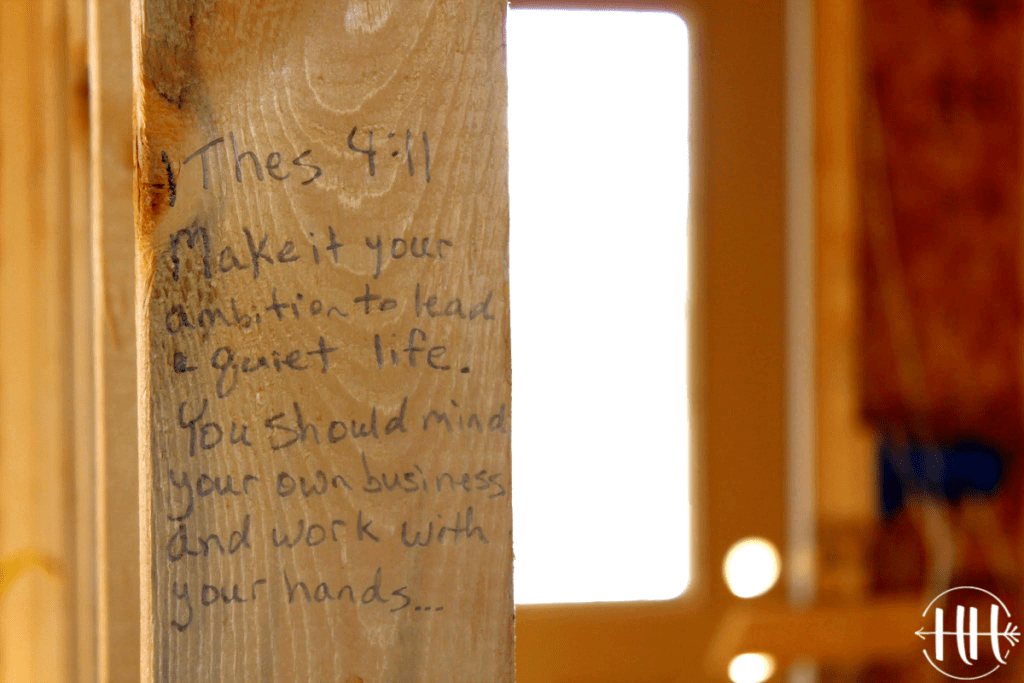 1 Thes 4:11
Make it your
ambition to lead
a quiet life.
You should mind
your own business
and work with
your hands...
HH